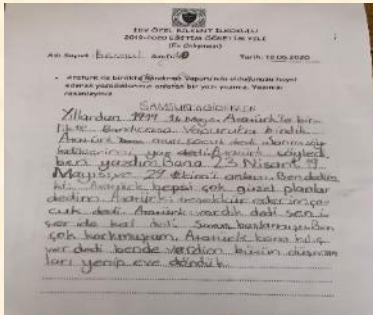 İDV ÖZEL BİLKENT İLKOKULU
2019-2020 EĞİTİM ÖĞRETİM YILI
(Ev Çalışması)
Adı Soyadı: Sınıfı: Tarih: 10.05.2020
Atatürk ile birlikte Bandırma Vapuru'nda olduğunuzu hayal
ederek yaşadıklarınızı anlatan bir yazı yazınız. Yazınızı
SAMSUN'A GİDERKEN
Yıllardan 1919 16 Mayıs Atatürk'le bir
likte Bandırma Vapuruna bindik
Atatürk bana çocuk dedi
yaz dedi Atatürk söyledi
ben yazdım Bana 23 Nisan'ı 19
Mayıs'ı ve 29 Ekim'i anlattı. Ben dedim
ki: Atatürk hepsi çok güzel planlar
dedim. Atatürk: teşekkür ederim ço
cuk dedi. Atatürk: vardık dedi sen iç
erde kal dedi Savaş Ben
çok korkmuyorum. Atatürk bana kılıç
ver dedi bende verdim bütün düşman
ları yenip eve döndük